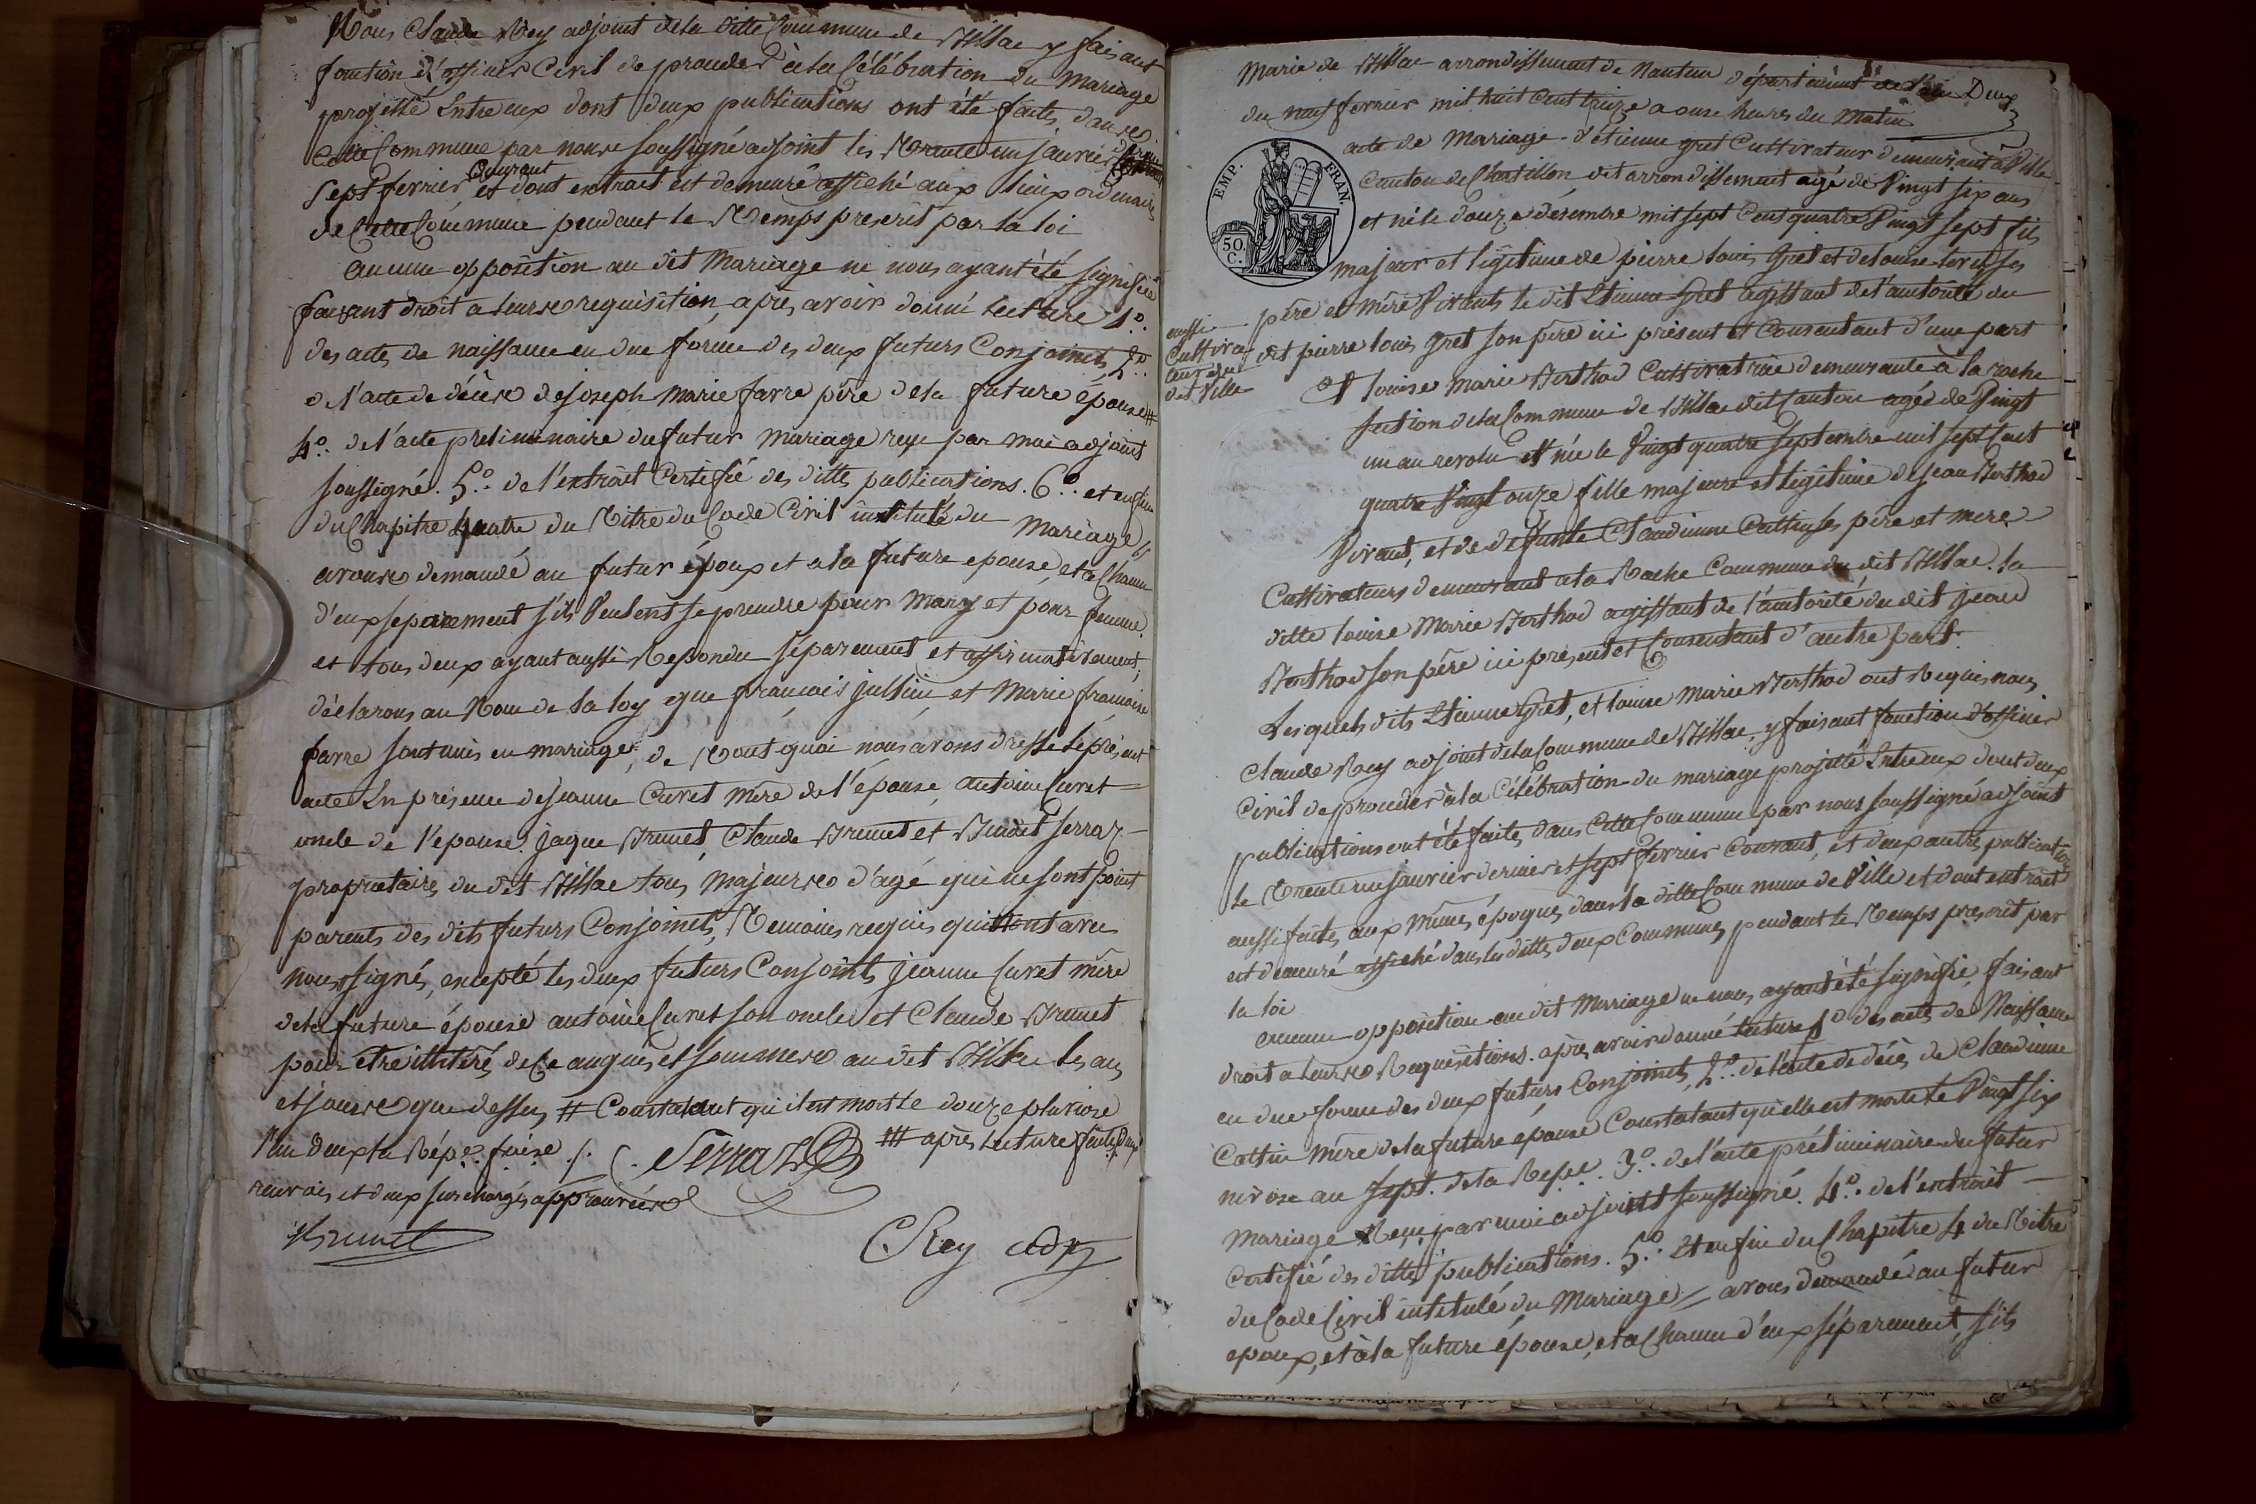 Nous Claude Rey adjoint dela ditte Commune de Billiac y faisant
fonction d'officier Civil de proceder à la Célébration du Mariage
projetté Entre eux dont deux publications ont été faites dans
Cette Commune par nous soussigné adjoint les trente un janvier dernier
sept fevrier courant et dont extrait est demeuré affiché aux lieux ordinaires
de Cette Commune pendant le Temps prescrit par la loi
aucune opposition au dit Mariage ne nous ayant été signifiée
faisant droit a leurs requisition, apres avoir donné lecture 1º
des actes de naissance en due forme des deux futurs Conjoints, 2º
de l'acte de décès de joseph marie farre père dela future épouse #
4º de l'acte preliminaire du futur mariage reçu par moi adjoint
soussigné. 5º de l'extrait Certifié des dittes publications. 6º et enfin
du Chapitre quatre du Titre du Code Civil intitulé du Mariage
avons demandé au futur époux et a la future epouse, et a Chacun
d'eux séparement s'ils Veulent se prendre pour Mary et pour femme.
et tous deux ayant aussi Repondu séparement et affirmativement,
déclarons au Nom de la loy que francois jullin et Marie francoise
farre sont unis en mariage, de tout quoi nous avons dressé le présent
acte En présence de jeanne Curet mère de l'épouse, antoine Curet
oncle de l'epouse. jaque Brunet, Claude Brunet et Serraz
propriétaires du dit Billiac tous majeurs d'age qui ne sont point
parents des dits futurs Conjoints, Temoins requis qui ont avec
nous signés, excepté les deux futurs Conjoints, jeanne Curet mère
dela future épouse antoine Curet son oncle et Claude Brunet
pour etre illitéré, de Ce enquis et sommers au dit Billiac les an
et jours que dessus, # Constatant qu'il est mort le douze pluviose
l'an deux la Répe. ## après Lecture faite. Deux
renvois, et deux surcharges approuvées
Serraz
Brunet
CRey adjt
Marie de Billiac arrondissement de Nantua département de l'ain Deux
du neuf fevrier mil huit Cent treize a onze heures du Matin
acte de Mariage d'étienne gret Cultivateur demeurant à Ville
Canton de Chatillon dit arrondissement agé de Vingt six ans
et né le douze décembre mil sept Cent quatre Vingt sept fils
majeur et légitime de pierre louis gret et de louise
père et mère Vivants le dit Etienne gret agissant de l'autorité du
dit pierre louis gret son père ici présent et Consentant d'une part
aussi
Cultiva
teur au
dit Ville
Et louise Marie Berthod Cultivatrice demeurante à la roche
section dela Commune de Billiac dit Canton agée de Vingt
un an revolu et née le Vingt quatre septembre mil sept Cent
quatre Vingt onze fille majeure et légitime de jean Berthod
Vivant, et de defunte Claudinne père et mere
Cultivateurs demeurant a la Roche Commune du dit Billiac. la
ditte louise Marie Berthod agissant de l'autorité du dit jean
Berthod son père ici présent et Consentant d'autre part.
Lesquels dits Etienne Gret, et louise Marie Berthod ont Requis nous
Claude Rey adjoint dela Commune de Billiac, y faisant fonction d'officier
Civil de proceder à la Célébration du mariage projetté Entre eux dont deux
publications ont été faites dans Cette Commune par nous soussigné adjoint
le Trente un janvier dernier et sept fevrier Courant, et deux autres publications
aussi faites aux mêmes époques dans la ditte Commune de Ville et dont extrait
est demeuré affiché dans les dittes deux Communes pendant le Temps prescrit par
la loi
aucune opposition au dit Mariage ne nous ayant été signifié, faisant
droit a leurs Requisitions. après avoir donné lecture 1º des actes de Naissance
en due forme des deux futurs Conjoints, 2º de l'acte de décès de Claudinne
Cattin mère dela future épouse Constatant qu'elle est morte le Vingt six
nivose an sept. dela Repe. 3º de l'acte préliminaire du futur
Mariage Reçu par moi adjoint soussigné. 4º de l'extrait
Certifié des dittes publications. 5º Et enfin du Chapitre 4 du Titre
du Code Civil intitulé du Mariage = avons demandé au futur
epoux, et à la future épouse, et a Chacun d'eux séparement, s'ils
EMP. FRAN.
50.
C.